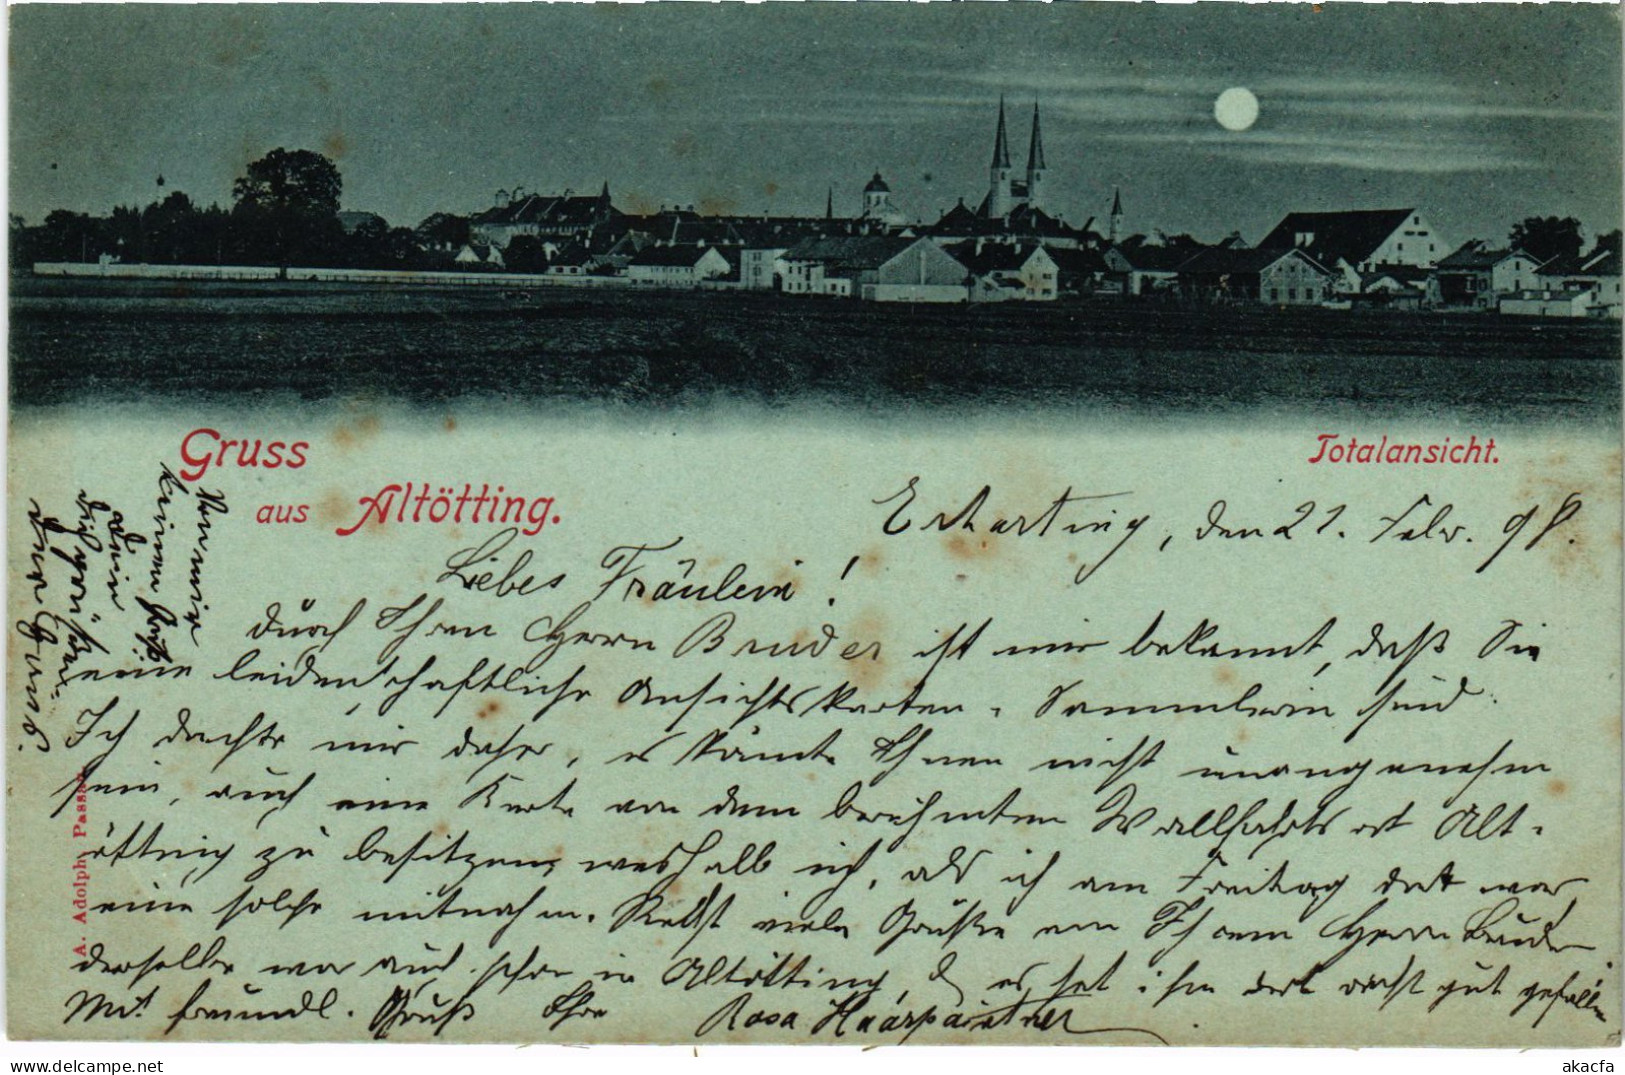 Gruss
aus Altötting.
Totalansicht.
Erharting, den 21. Febr. 98.
Liebes Fräulein!
durch Ihren Herrn Bruder ist mir bekannt, daß Sie
eine leidenschaftliche Ansichtskarten-Sammlerin sind.
Ich dachte mir daher, es könnte Ihnen nicht unangenehm
sein, auch eine Karte von dem berühmten Wallfahrtsort Alt-
ötting zu besitzen, weshalb ich, als ich am Freitag dort war
eine solche mitnahm. Nebst viele Grüße von Ihrem Herrn Bruder
derselbe war auch schon in Altötting, & es hat ihm dort recht gut gefallen
Mit freundl. Gruß Ihre Rosa Haarpaintner
keinen Gruß
A. Adolph, Passau
akacfa